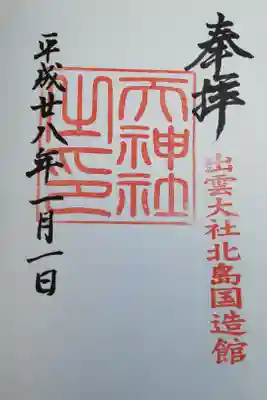 奉拝
出雲大社北島国造館
天神社
之印
平成廿八年一月一日